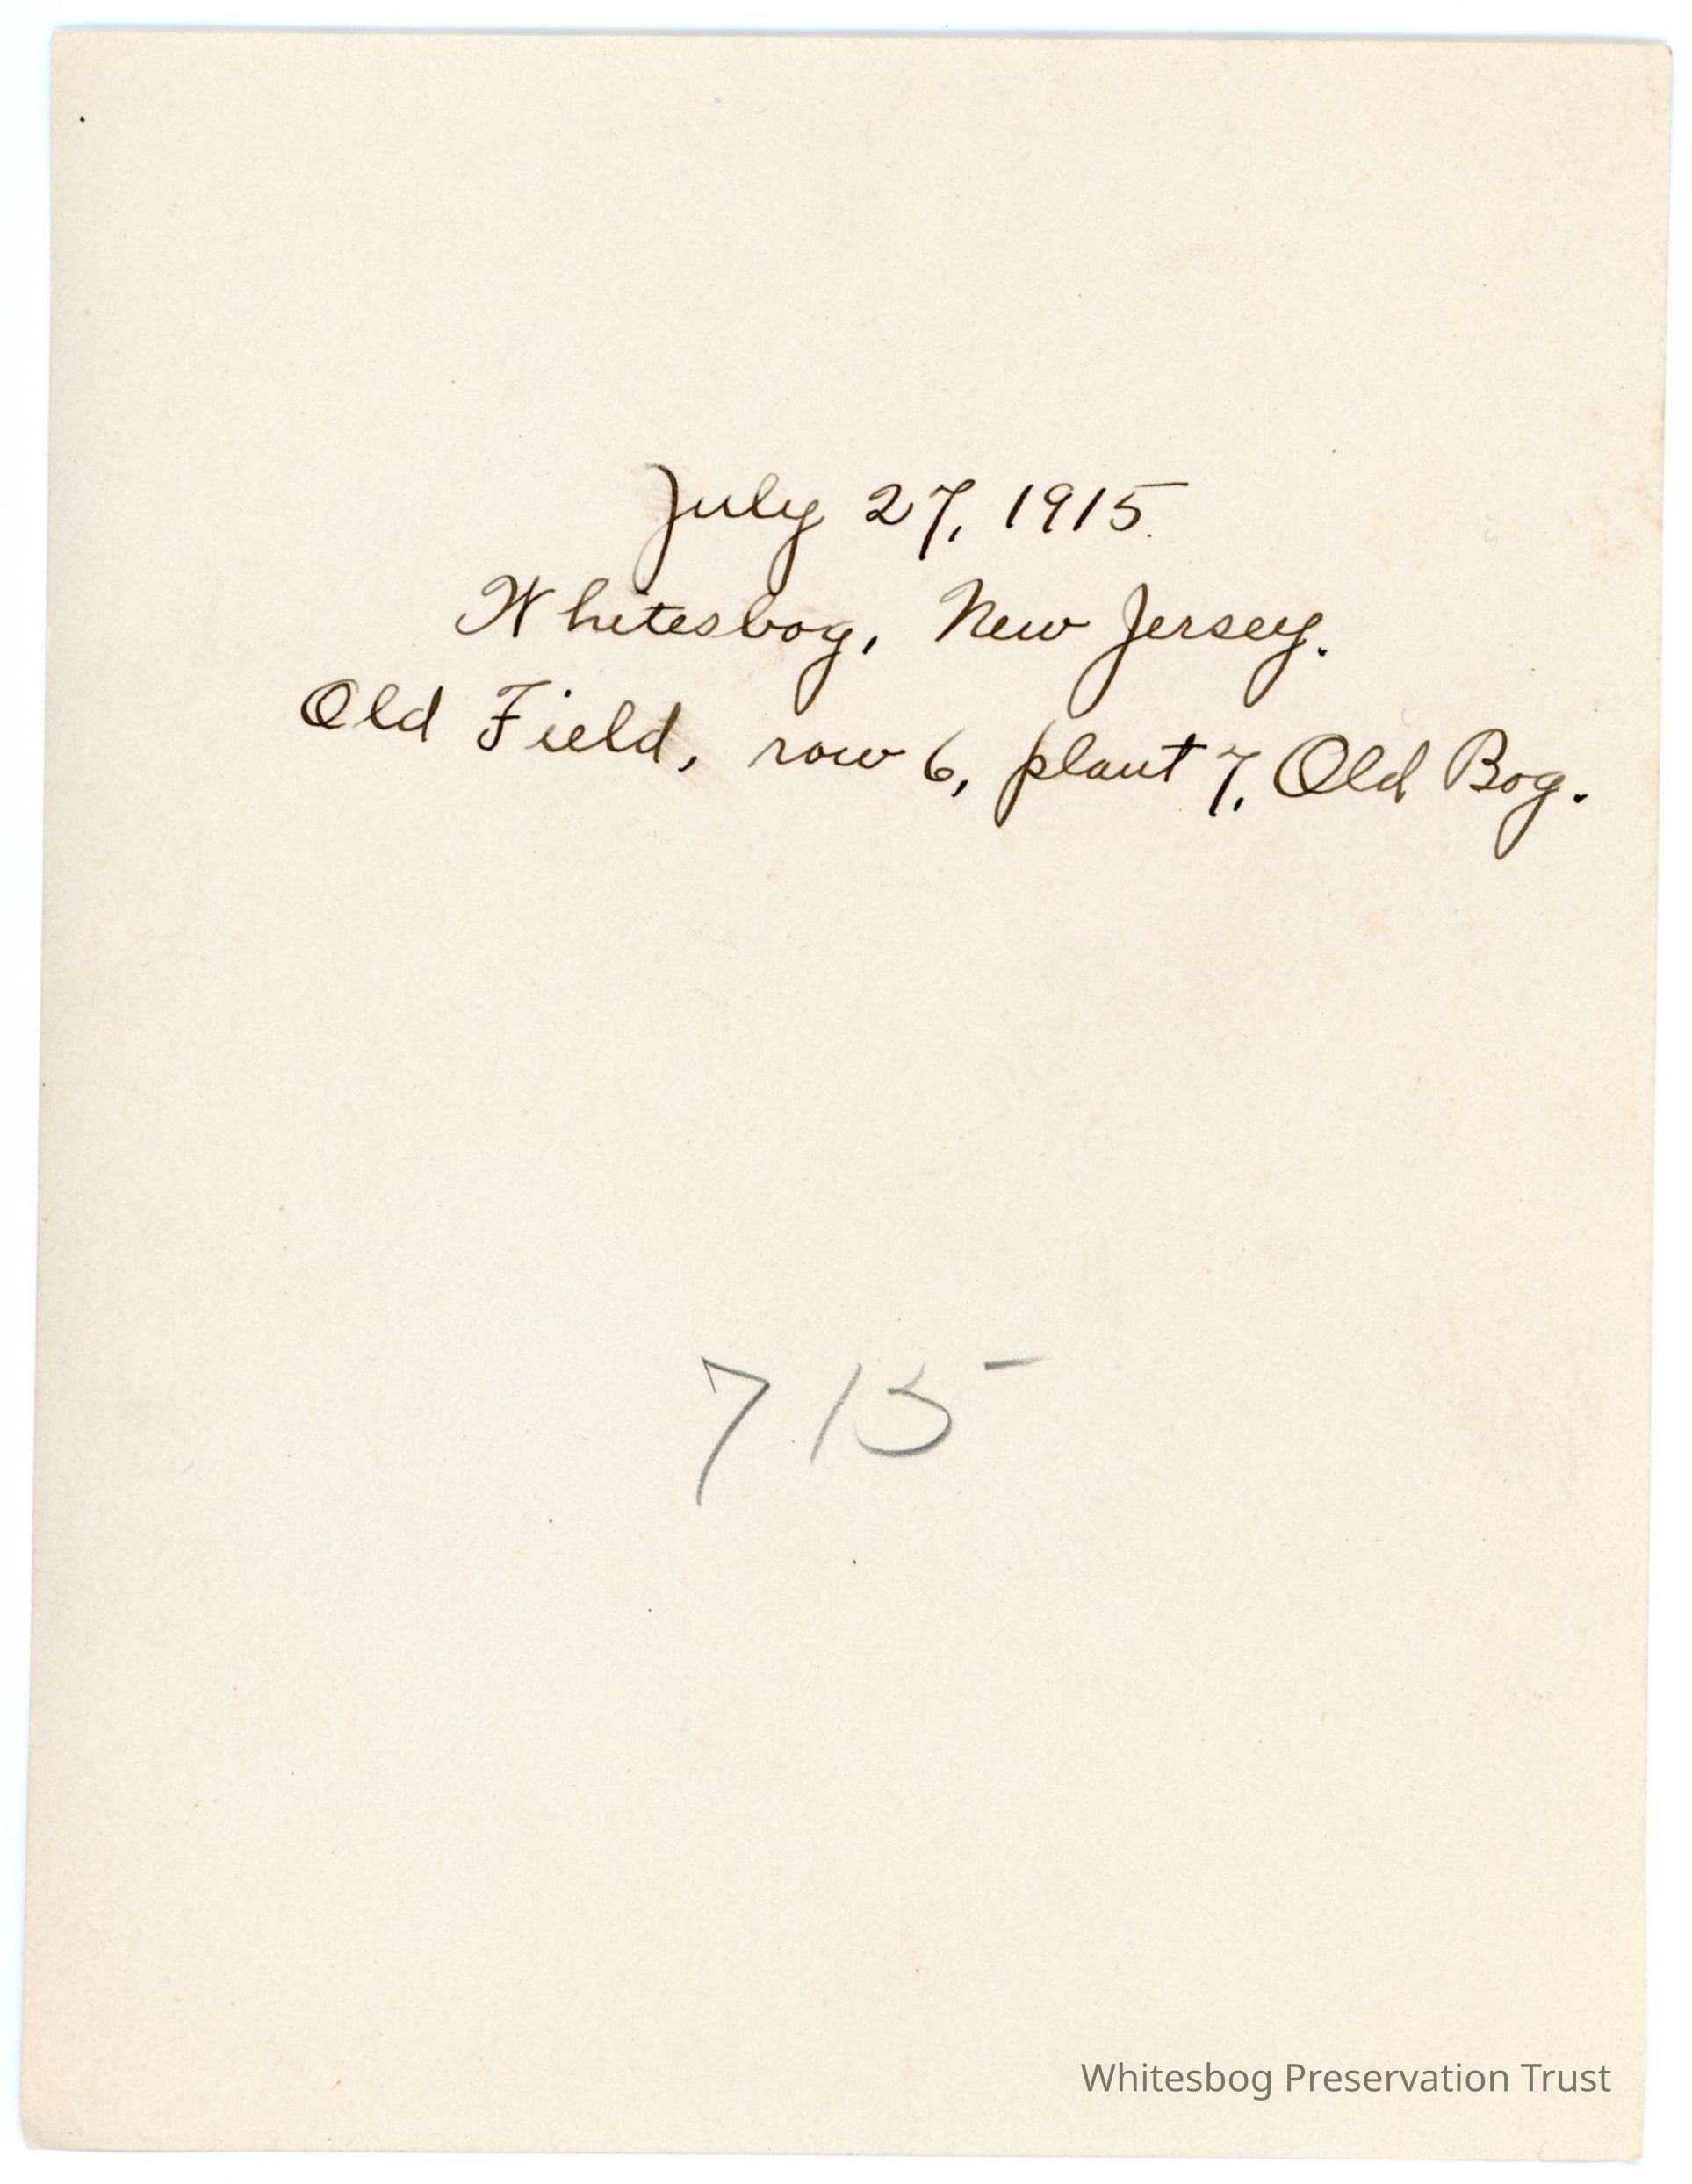 July 27, 1915.
Whitesbog, New Jersey.
Old Field, row 6, plant 7, Old Bog.
715
Whitesbog Preservation Trust